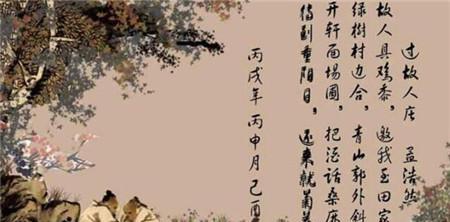 过故人庄 孟浩然
故人具鸡黍，邀我至田家
绿樹村边合，青山郭外斜
开轩面场圃，把酒话桑麻
待到重阳日，还来就菊
丙戌年 丙申月 己酉